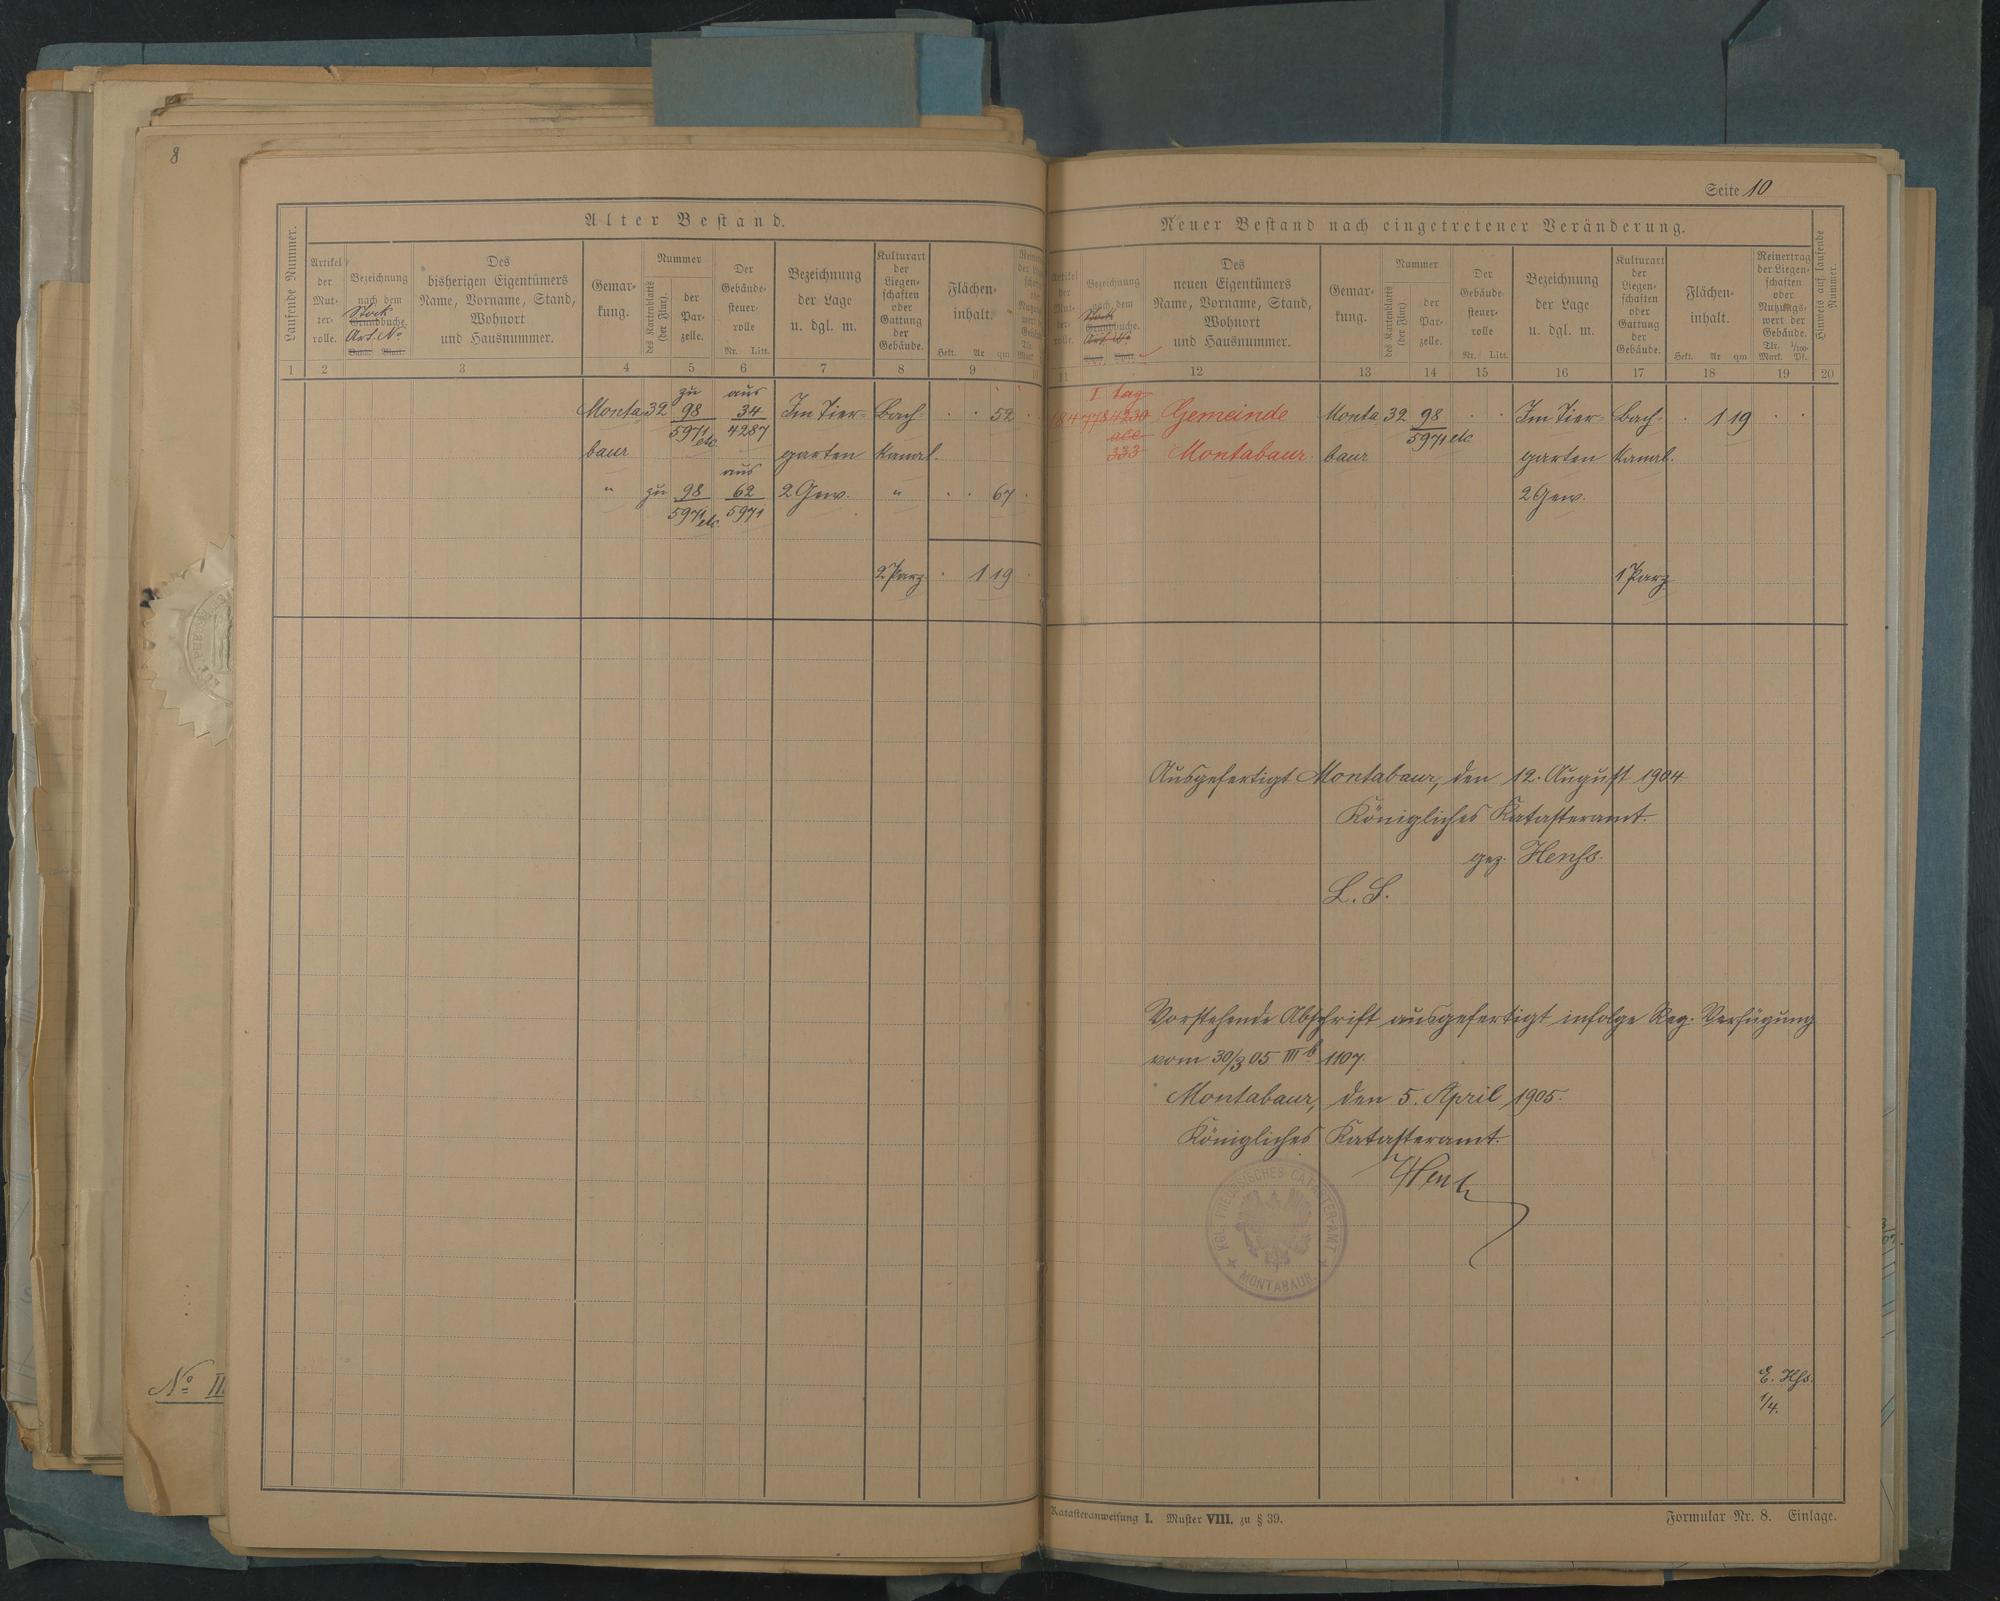 8
Seite 10
Alter Bestand.
Neuer Bestand nach eingetretener Veränderung.
Laufende Nummer.
Artikel der Mutterrolle.
Bezeichnung nach dem Grundbuche.
Stock
Art. No
Band. Blatt.
Des bisherigen Eigentümers
Name, Vorname, Stand,
Wohnort
und Hausnummer.
Gemar-
kung.
Nummer
des Kartenblatts (der Flur).
der Par-
zelle.
Der Gebäude-
steuer-
rolle
Nr. Litt.
Bezeichnung
der Lage
u. dgl. m.
Kulturart
der
Liegen-
schaften
oder
Gattung
der
Gebäude.
Flächen-
inhalt.
Hekt. Ar qm
Des
neuen Eigentümers
Name, Vorname, Stand,
Wohnort
und Hausnummer.
Gemar-
kung.
Nummer
des Kartenblatts (der Flur).
der
Par-
zelle.
Der
Gebäude-
steuer-
rolle
Nr. Litt.
Bezeichnung
der Lage
u. dgl. m.
Kulturart
der
Liegen-
schaften
oder
Gattung
der
Gebäude.
Flächen-
inhalt.
Hekt. Ar qm
Reinertrag
der Liegen-
schaften
oder
Nutzungs-
wert der
Gebäude.
Tlr. 1/100
Mark. Pf.
Hinweis auf laufende Nummer.
1 2 3 4 5 6 7 8 9
11 12 13 14 15 16 17 18 19 20
zu aus
Monta 32 98 34 Im Tier= Bach 52
5971 etc 4287
baur garten Kanal.
aus
" zu 98 62 2 Gew. " 67
5971 etc. 5971
2 Parz. 1 19
I tag
Gemeinde Monta 32 98 Im Tier= Bach= 1 19
5971 etc
333 Montabaur baur garten Kanal.
2 Gew.
1 Parz.
Ausgefertigt Montabaur, den 12. August 1904.
Königliches Katasteramt.
gez. Henss.
L. S.
Vorstehende Abschrift ausgefertigt infolge Reg. Verfügung
vom 30/3 05 III b 1107.
Montabaur, den 5. April 1905.
Königliches Katasteramt.
KGL. PREUSSISCHES CATASTER-AMT
MONTABAUR
No II
1/4.
Katasteranweisung I. Muster VIII. zu § 39.
Formular Nr. 8. Einlage.